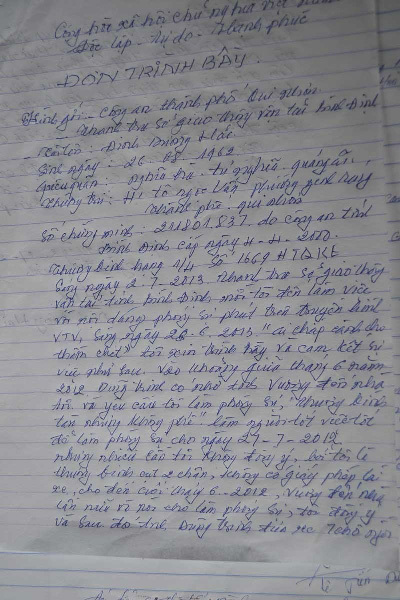 Cộng hòa xã hội chủ nghĩa việt nam
Độc lập - Tự do - Hạnh phúc
ĐƠN TRÌNH BÀY.
Kính gởi - Công an thành phố Qui nhơn
Thanh tra Sở giao thông vận tải bình Định
Tôi tên: Đinh Hải
Sinh ngày: 26-08-1962
quê quán: nghĩa - tư nghĩa - quảng ngãi
thường trú: 41 tô ngọc Vân phường
thành phố - qui nhơn
Số chứng minh: 211801837 do công an tỉnh
Bình Định cấp ngày 2010
thương binh hạng 1/4 số 1669
Sáng ngày 2-7-2013 thanh tra Sở giao thông
vận tải tỉnh bình Định, mời tôi đến làm việc
với nội dung phóng sự phát trên truyền hình
VTV, Sáng ngày 2013 "ai chắp cánh cho
thêm" tôi xin trình bày và cam kết sự
việc như sau. Vào khoảng giữa tháng 6 năm
2012 Dung bình có nhờ anh Vương đến nhà
tôi và yêu cầu tôi làm phóng sự, "thương binh
tàn nhưng không phế" làm người tốt việc tốt
để làm phóng sự cho ngày 27-7-2012
nhưng nhiều lần tôi không đồng ý, bởi tôi là
thương binh cụt 2 chân, không có giấy phép lái
xe, cho đến cuối tháng 6-2012, Vương đến nhà
lần nữa và nói chỉ làm phóng sự, tôi đồng ý
và sau đó anh Dung bình đưa xe 7 chỗ ngồi